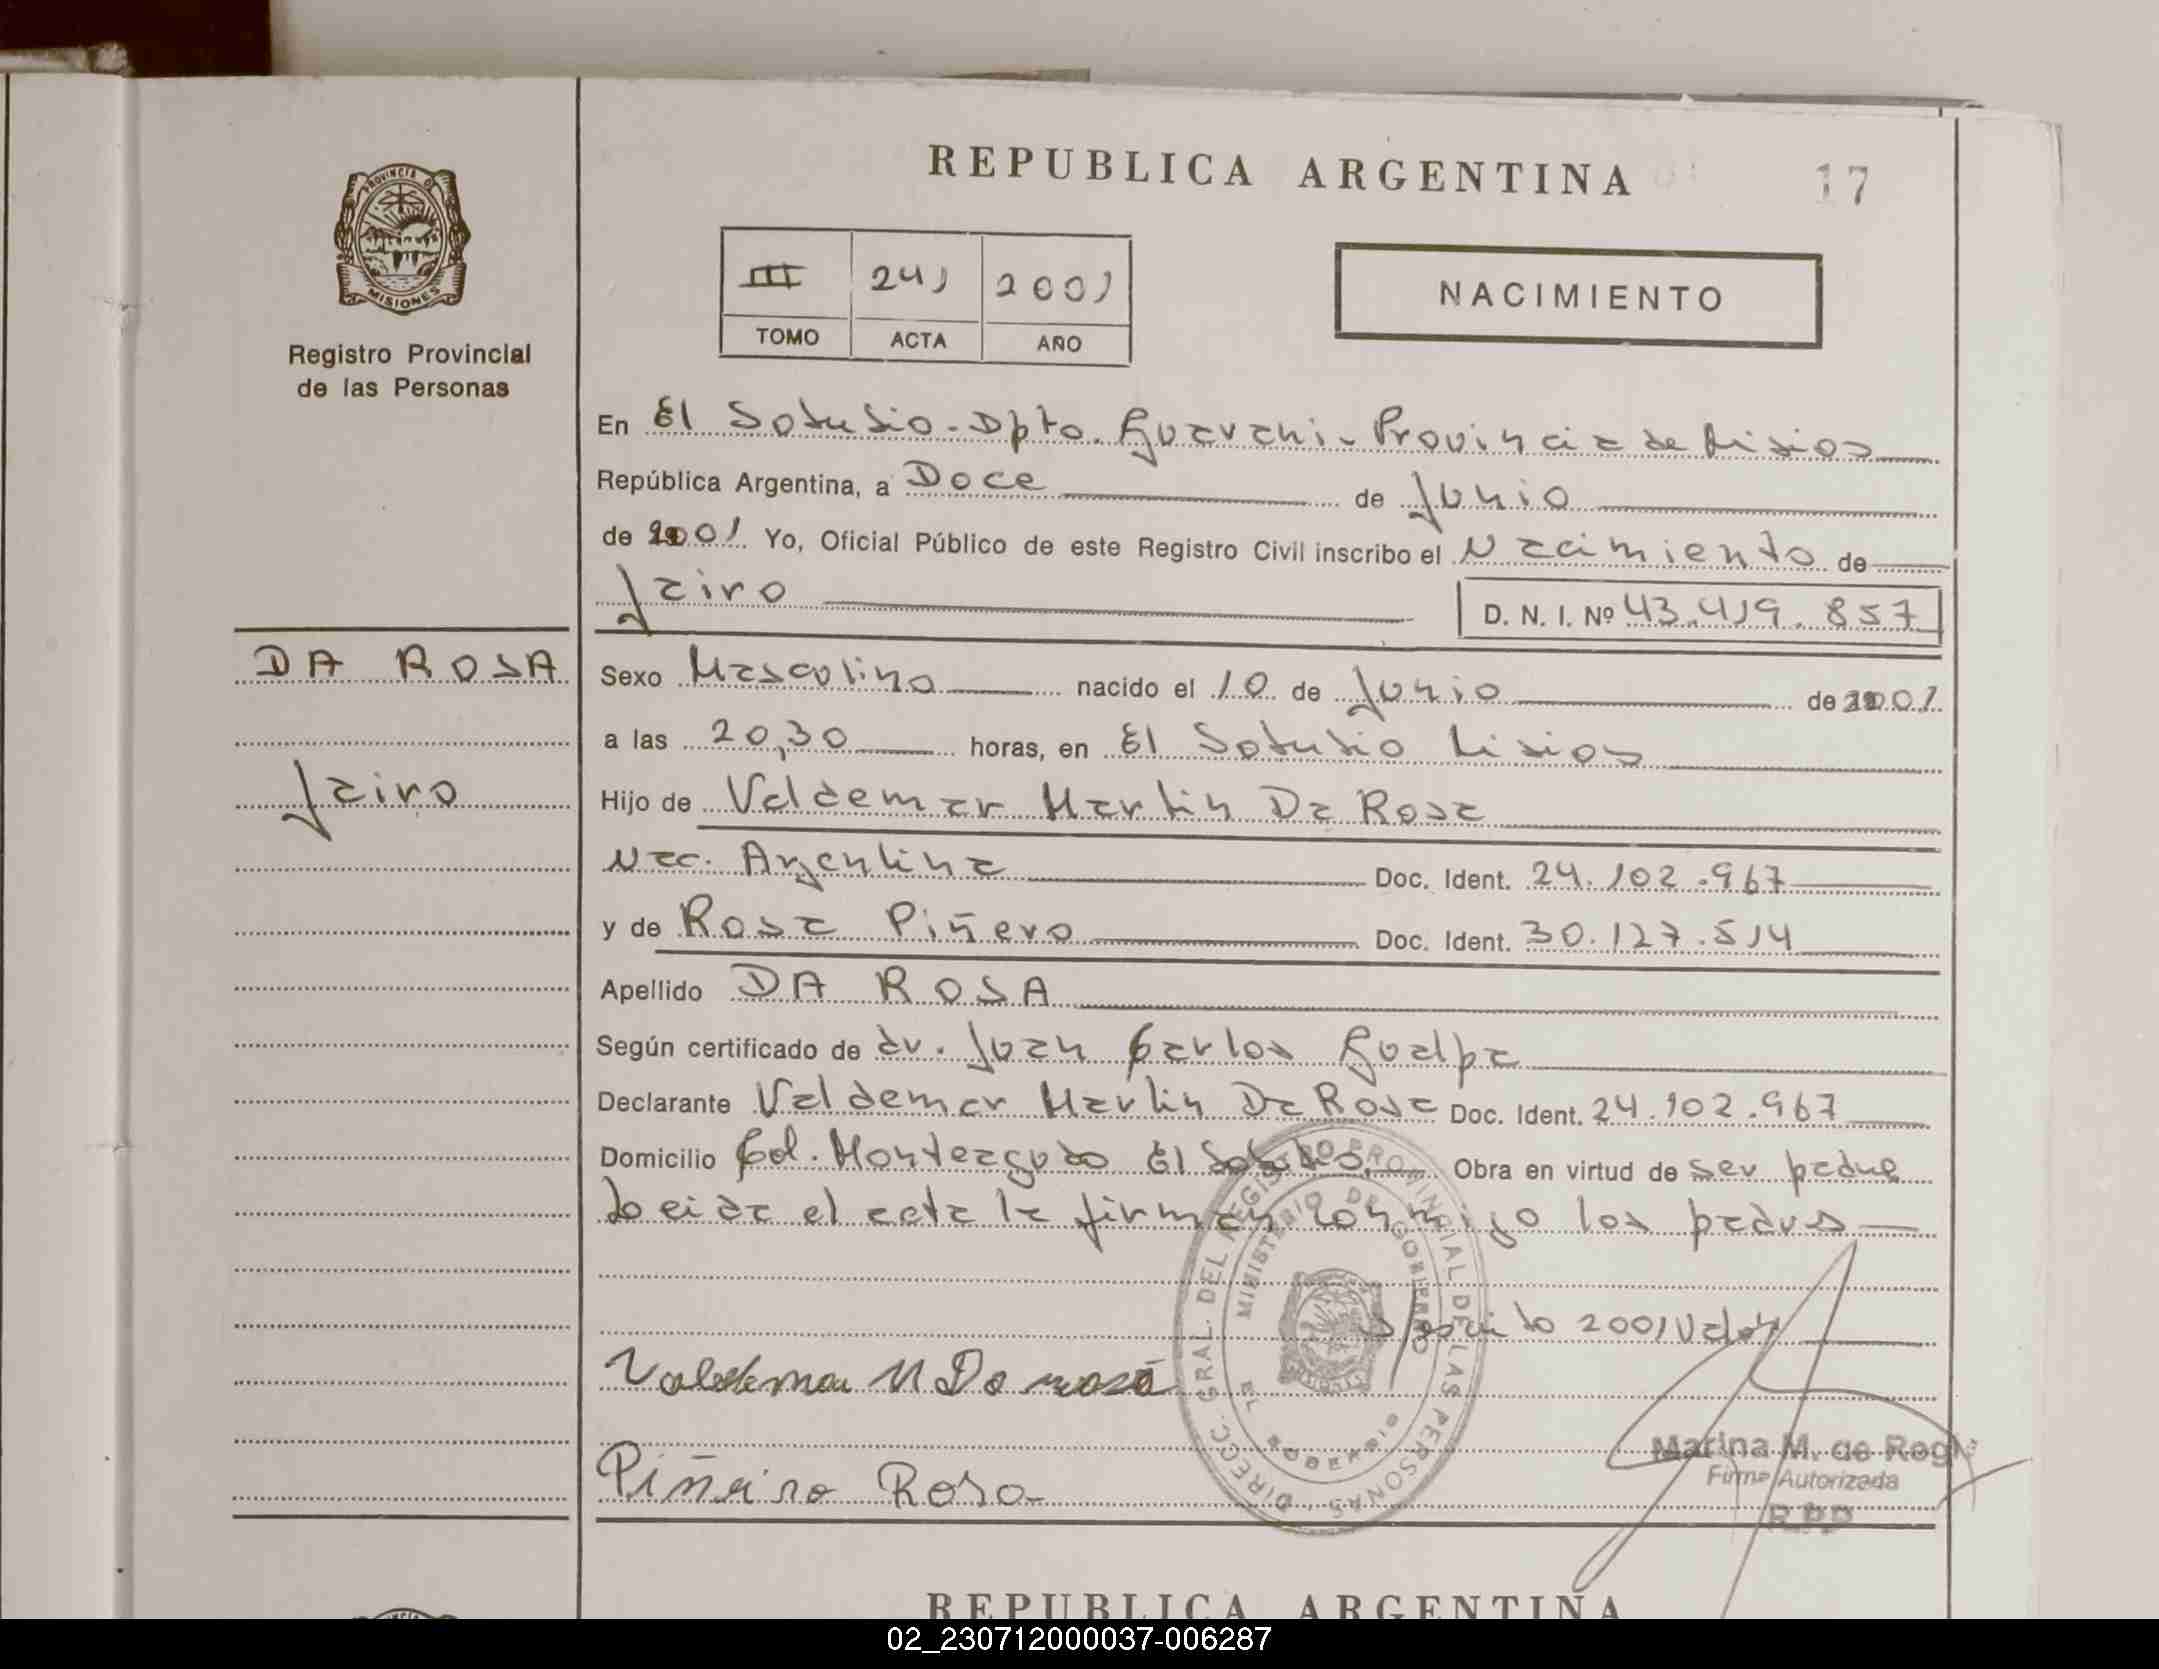 REPUBLICA ARGENTINA
17
PROVINCIA DE
MISIONES
Registro Provincial
de las Personas
III 241 2001
TOMO ACTA AÑO
NACIMIENTO
En El Soberbio - Dpto. Guarani - Provincia de Misios
República Argentina, a Doce de Junio
de 2001 Yo, Oficial Público de este Registro Civil inscribo el Nacimiento de
Jairo
D. N. I. Nº 43.419.857
DA ROSA
Jairo
Sexo Masculino nacido el 10 de Junio de 2001
a las 20,30 horas, en El Soberbio Misios
Hijo de Valdemar Martin Da Rosa
Nac. Argentina Doc. Ident. 24.102.967
y de Rosa Piñero Doc. Ident. 30.127.514
Apellido DA ROSA
Según certificado de dr. Juan Carlos Gualpa
Declarante Valdemar Martin Da Rosa Doc. Ident. 24.102.967
Domicilio Col. Monteagudo El Soberbio Obra en virtud de ser padre
Leida el acta la firman conmigo los padres
2001 Valen
Valdemar M Da rosa
Piñeiro Rosa
DIRECC. GRAL. DEL REGISTRO PROVINCIAL DE LAS PERSONAS
MINISTERIO DE GOBIERNO
EL SOBERBIO
Marina M. de
Firma Autorizada
RPP
REPUBLICA ARGENTINA
02_230712000037-006287